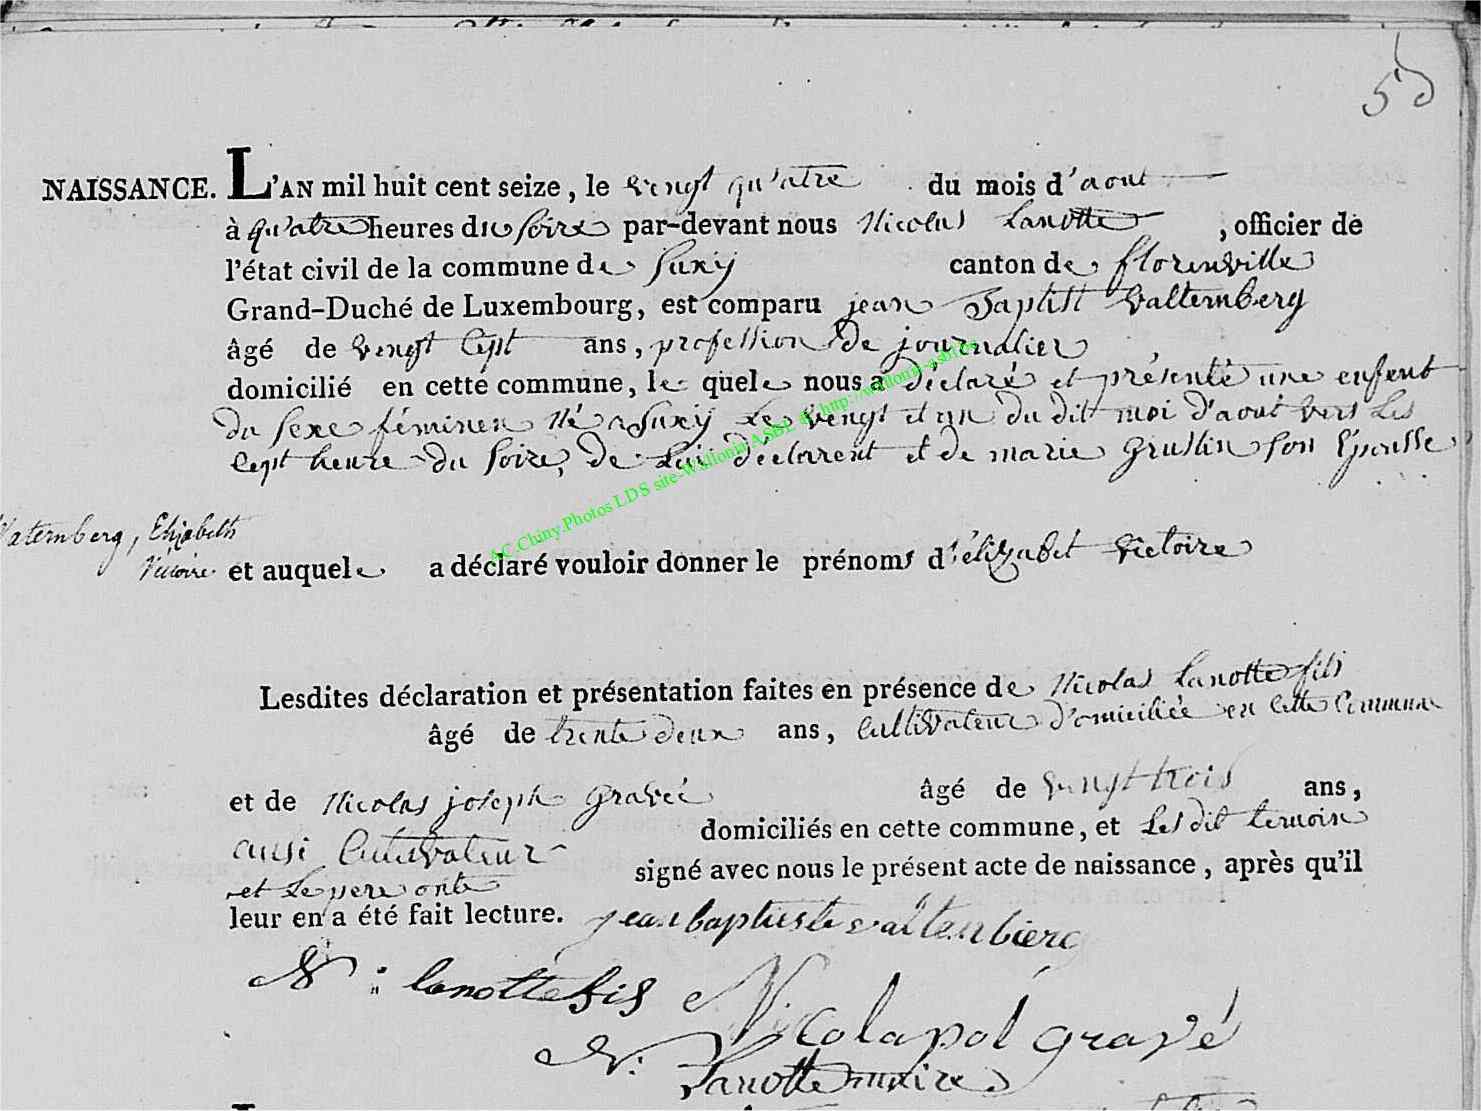 NAISSANCE. L'AN mil huit cent seize, le vingt qu'atre du mois d'aout
à qu'atre heures du soire par-devant nous Nicolas Lanotte, officier de
l'état civil de la commune de Suxÿ canton de florenville
Grand-Duché de Luxembourg, est comparu jean Baptist Valternberg
âgé de vingt sept ans, profession de journalier
domicilié en cette commune, le quele nous a déclaré et présenté une enfent
du sexe féminen né a Suxÿ Le vengt et un du dit moi d'aout vers Les
sept heure du soire, de Lui déclarent et de marie Gruslin son Epousse
Waternberg, Elizabeth
Victoire
et auquele a déclaré vouloir donner le prénoms d'élizabet victoire
Lesdites déclaration et présentation faites en présence de Nicolas Lanotte fils
âgé de trente deux ans, cultivateur d'omiciliée en cette Commune
et de Nicolas joseph Gravée âgé de vingt trois ans,
ausi Cultivateur domiciliés en cette commune, et Les dit temoin
et Le pere onte signé avec nous le présent acte de naissance, après qu'il
leur en a été fait lecture. jean baptiste valtenbierg
N: lanotte fils Nicolapol gravé
N: Lanotte maire
AC.Chiny.Photos LDS site-Wallonia ASBL